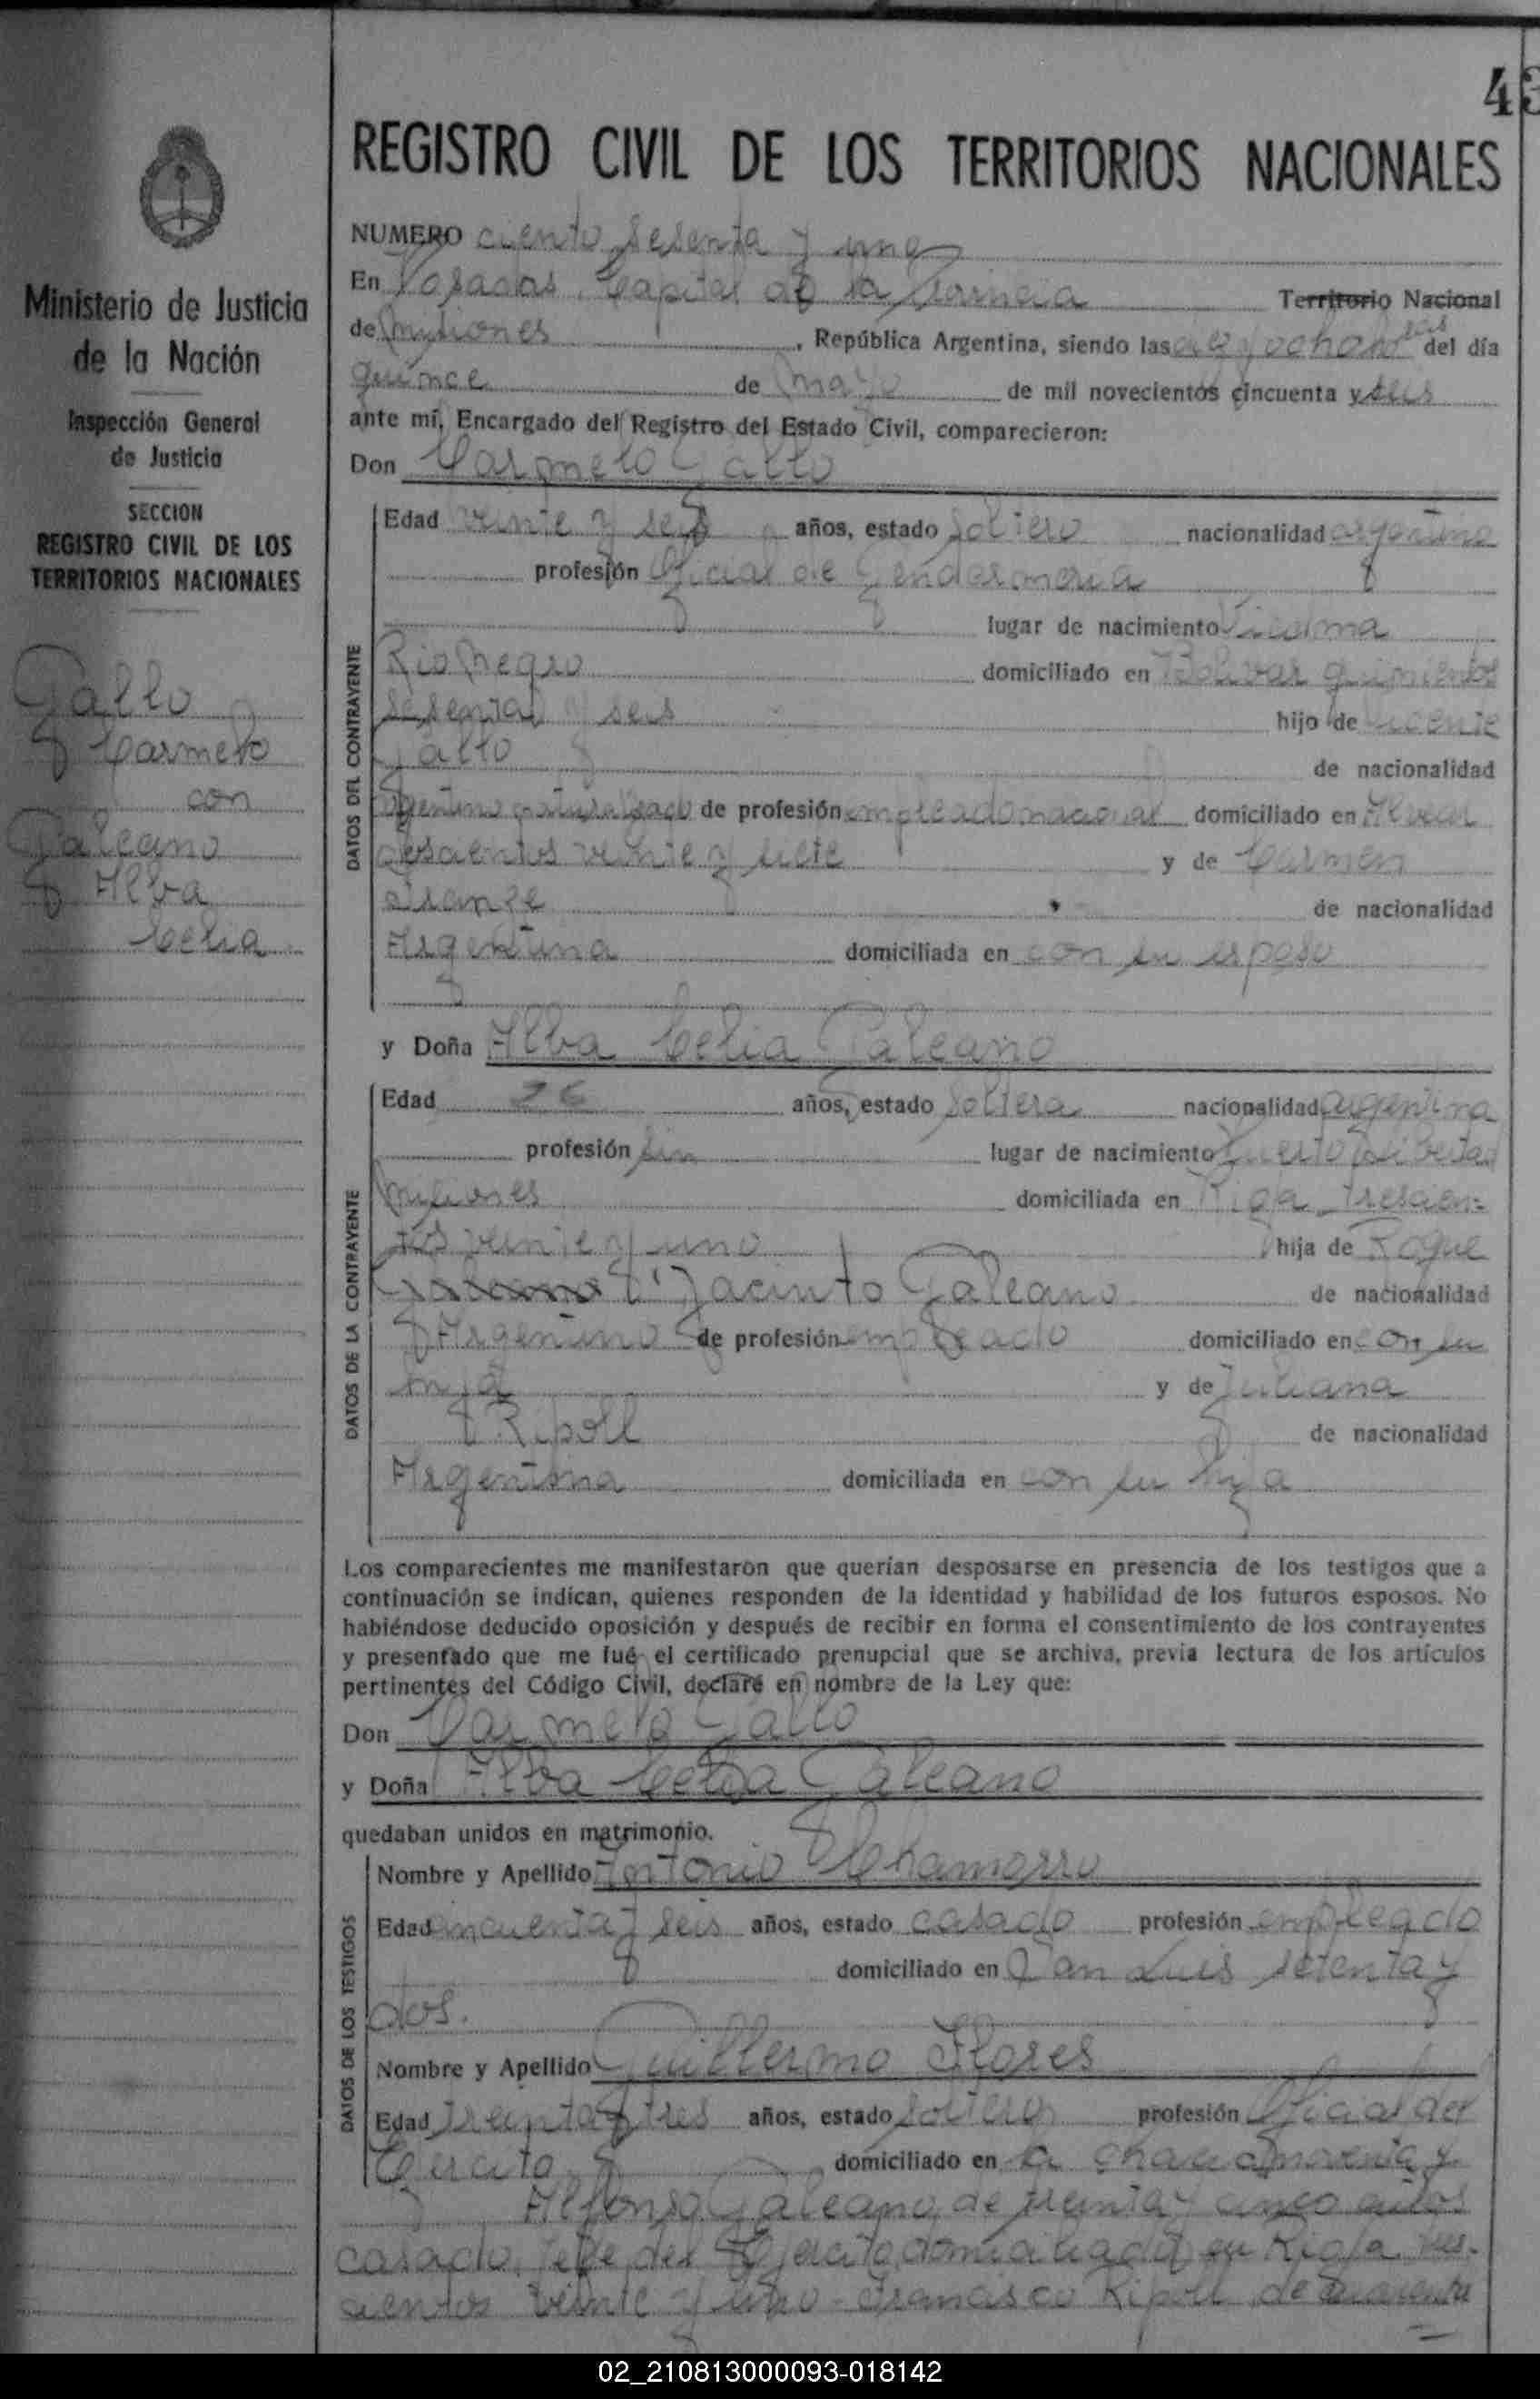 43
REGISTRO CIVIL DE LOS TERRITORIOS NACIONALES
Ministerio de Justicia
de la Nación
Inspección General
de Justicia
SECCION
REGISTRO CIVIL DE LOS
TERRITORIOS NACIONALES
Gallo
Carmelo
con
Galeano
Alba
Celia
NUMERO ciento sesenta y uno
En Posadas Capital de la Provincia Territorio Nacional
de Misiones, República Argentina, siendo las diez y ocho horas del día
quince de mayo de mil novecientos cincuenta y seis
ante mí, Encargado del Registro del Estado Civil, comparecieron:
Don Carmelo Gallo
DATOS DEL CONTRAYENTE
Edad veinte y seis años, estado soltero nacionalidad argentino
profesión Oficial de Gendarmeria
lugar de nacimiento Viedma
Rio Negro domiciliado en Bolivar quinientos
sesenta y seis hijo de Vicente
Gallo de nacionalidad
argentino naturalizado de profesión empleado nacional domiciliado en Alvear
doscientos veinte y siete y de Carmen
de nacionalidad
Argentina domiciliada en con su esposo
y Doña Alba Celia Galeano
DATOS DE LA CONTRAYENTE
Edad 26 años, estado soltera nacionalidad argentina
profesión sin lugar de nacimiento Puerto Libertad
Misiones domiciliada en Rioja trescien=
tos veinte y uno hija de Roque
Jacinto Galeano de nacionalidad
Argentino de profesión empleado domiciliado en con su
hija y de Juliana
Ripoll de nacionalidad
Argentina domiciliada en con su hija
Los comparecientes me manifestaron que querían desposarse en presencia de los testigos que a
continuación se indican, quienes responden de la identidad y habilidad de los futuros esposos. No
habiéndose deducido oposición y después de recibir en forma el consentimiento de los contrayentes
y presentado que me fué el certificado prenupcial que se archiva, previa lectura de los artículos
pertinentes del Código Civil, declaré en nombre de la Ley que:
Don Carmelo Gallo
y Doña Alba Celia Galeano
quedaban unidos en matrimonio.
DATOS DE LOS TESTIGOS
Nombre y Apellido Antonio Chamorro
Edad cincuenta y seis años, estado casado profesión empleado
domiciliado en San Luis setenta y
dos.
Nombre y Apellido Guillermo Flores
Edad treinta y tres años, estado soltero profesión Oficial del
Ejercito domiciliado en la chacra noventa y
Alfonso Galeano, de treinta y cinco años
casado, Jefe del Ejercito, domiciliado en Rioja tres-
cientos veinte y uno - Francisco Ripoll de
02_210813000093-018142